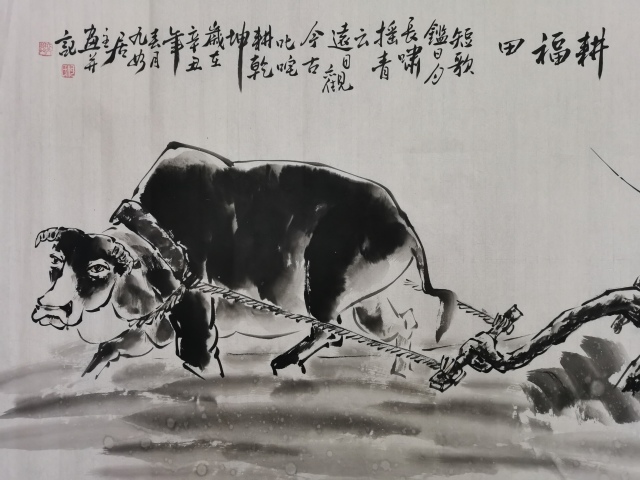 耕福田
短歌
鑑日月
長嘯
摇青
云
遠目觀
今古
叱咤
耕乾
坤
歲在
辛丑
年
春月
九如
居主
画并
記